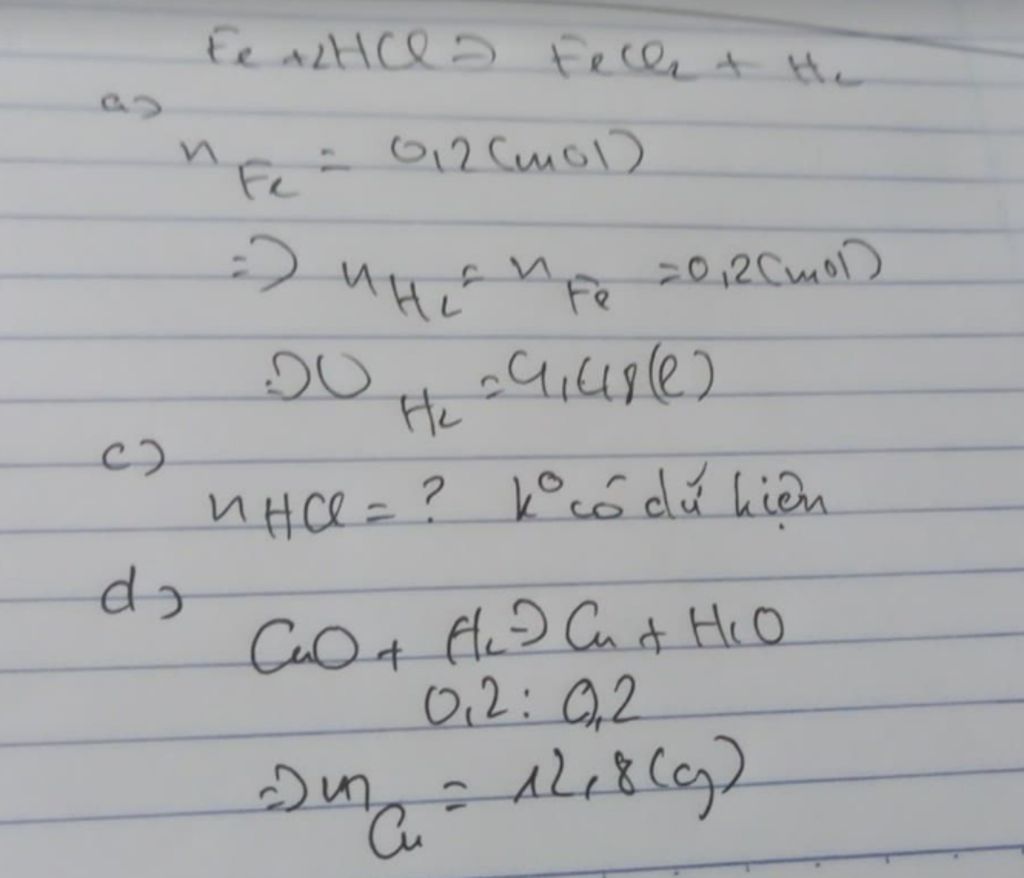 Fe + 2HCl => FeCl₂ + H₂
a>
n Fe = 0,2 (mol)
=> n H₂ = n Fe = 0,2 (mol)
=> V H₂ = 4,48 (l)
c>
n HCl = ? kº có dữ kiện
d>
CuO + H₂ => Cu + H₂O
0,2 : 0,2
=> m Cu = 12,8 (g)